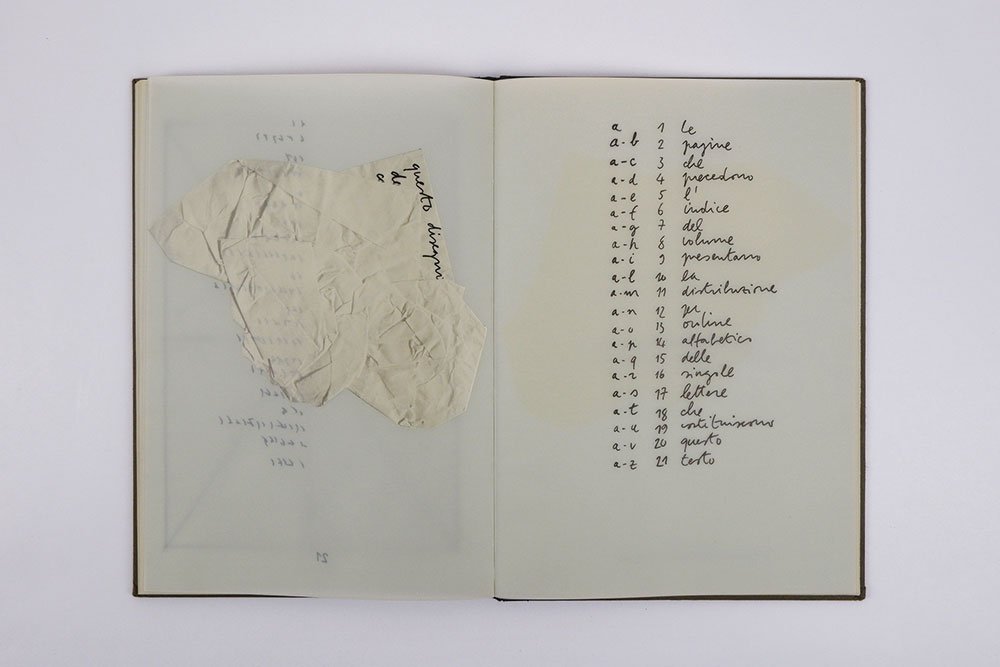 questo disegni
de
a 1 le
a-b 2 pagine
a-c 3 che
a-d 4 precedono
a-e 5 l'
a-f 6 indice
a-g 7 del
a-h 8 volume
a-i 9 presentano
a-l 10 la
a-m 11 distribuzione
a-n 12 per
a-o 13 ordine
a-p 14 alfabetico
a-q 15 delle
a-r 16 singole
a-s 17 lettere
a-t 18 che
a-u 19 costituiscono
a-v 20 questo
a-z 21 testo
21